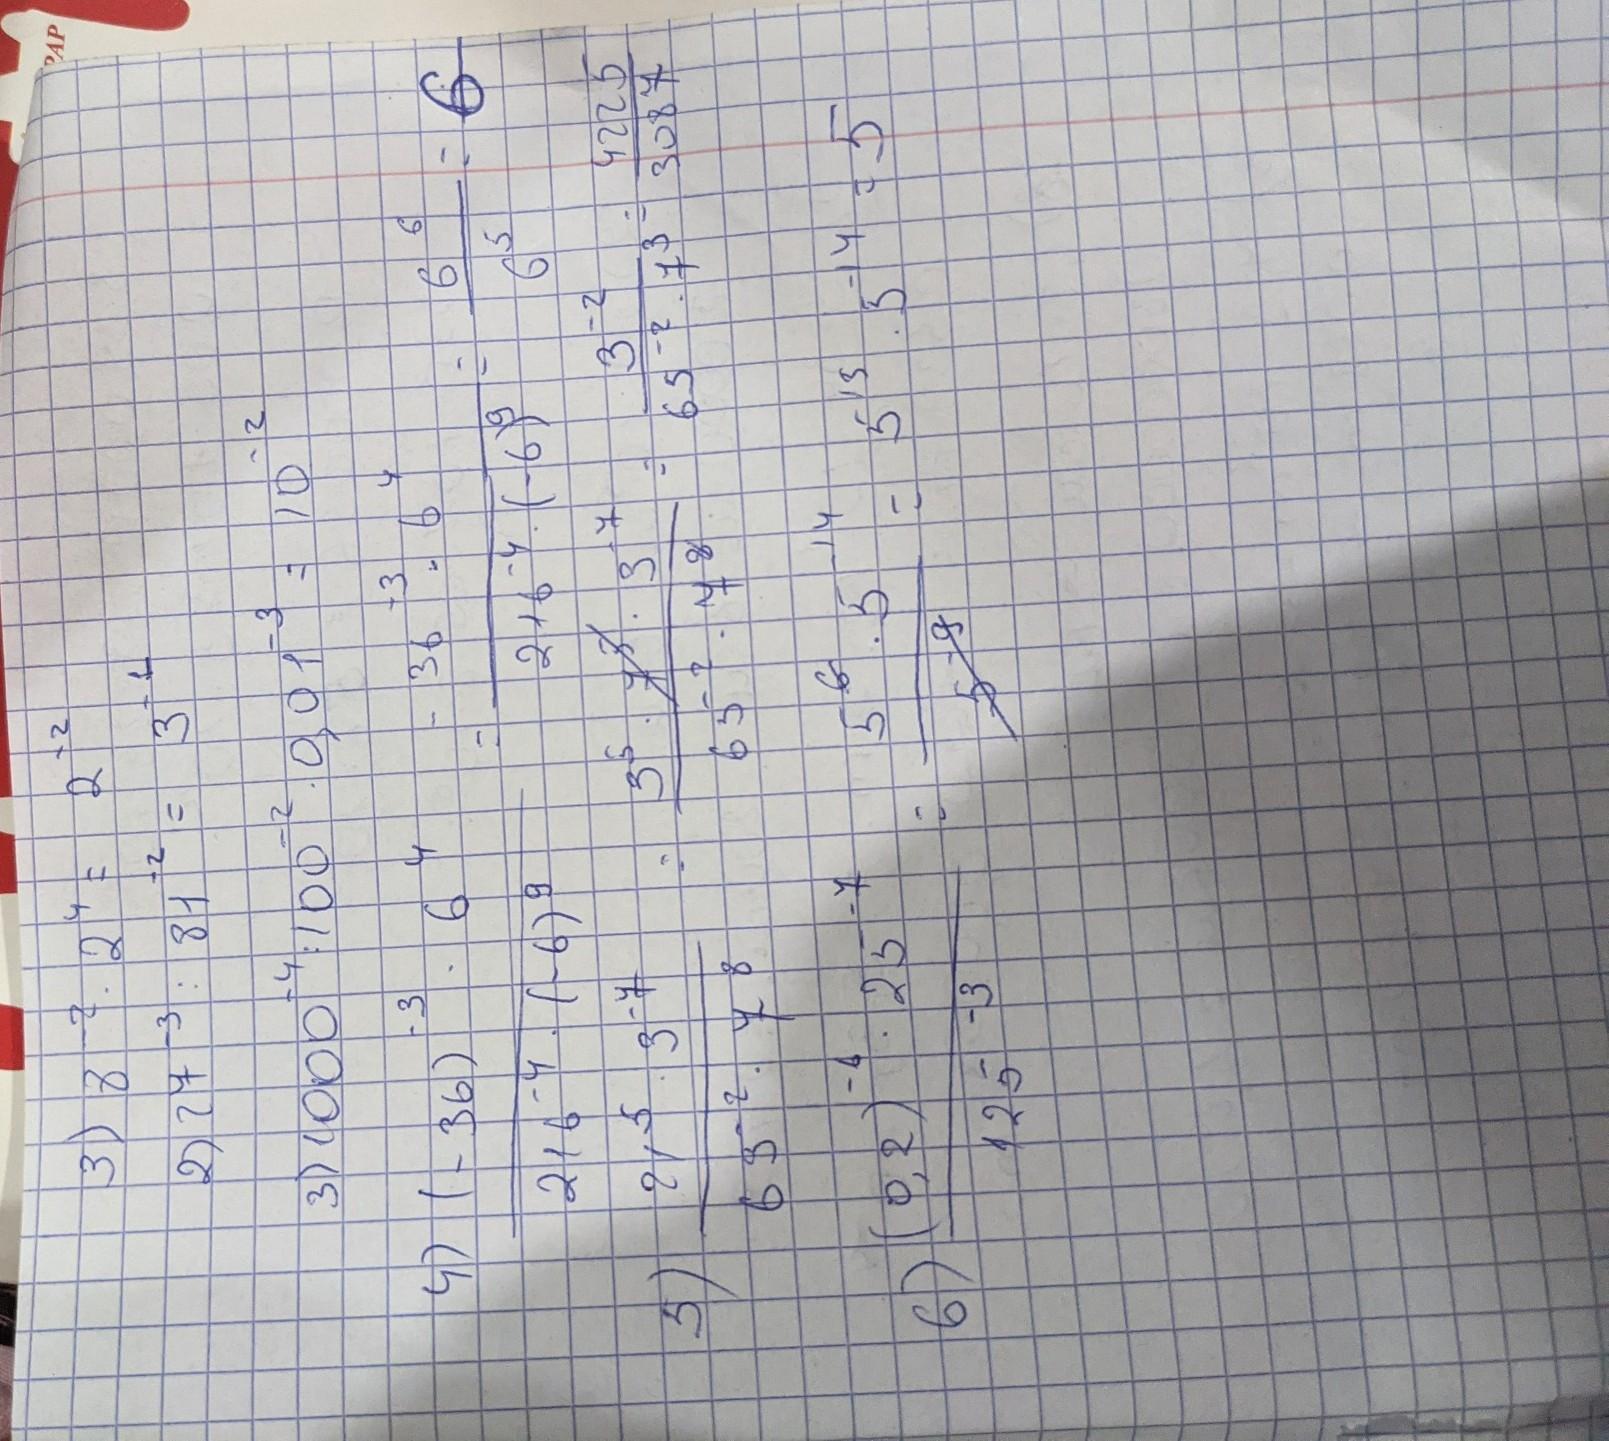 PAP
3) 8⁻² · 2⁴ = 2⁻²
2) 27⁻³ : 81⁻² = 3⁻¹
3) 1000⁻⁴ : 100⁻² · 0,01⁻³ = 10⁻²
4) (-36)⁻³ · 6⁴ / 216⁻⁴ · (-6)⁹ = -36⁻³ · 6⁴ / 216⁻⁴ · (-6)⁹ = 6⁶ / 6⁵ = 6
5) 21⁵ · 3⁻⁷ / 63⁻² · 7⁸ = 3⁵ · 7⁵ · 3⁻⁷ / 63⁻² · 7⁸ = 3⁻² / 65⁻² · 7³ = 4225 / 3087
6) (0,2)⁻⁶ · 25⁻⁷ / 125⁻³ = 5⁶ · 5⁻¹⁴ / 5⁻⁹ = 5¹⁵ · 5⁻¹⁴ = 5